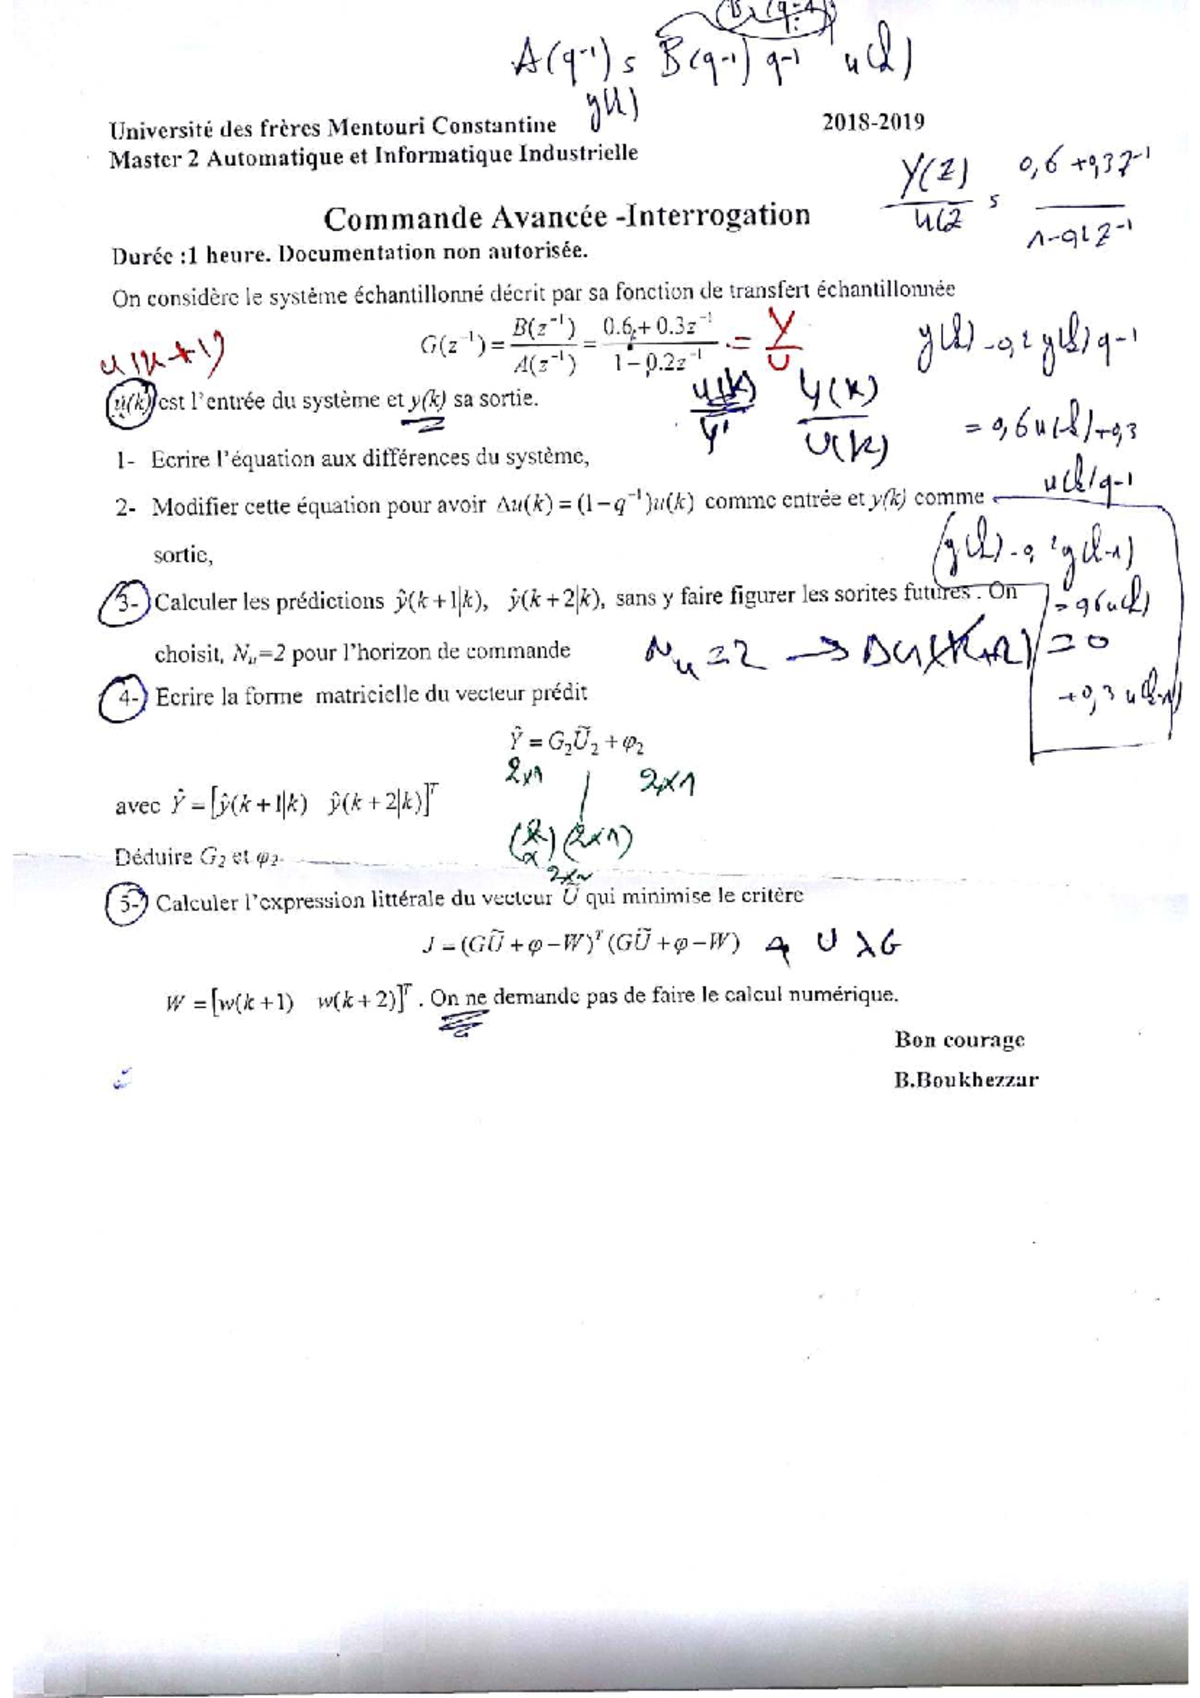 A(q-1) s B(q-1) q-1 u(k)
y(k)
Université des frères Mentouri Constantine 2018-2019
Master 2 Automatique et Informatique Industrielle
Y(Z) s 0,6 +0,3Z-1
Commande Avancée -Interrogation
Durée :1 heure. Documentation non autorisée.
On considère le système échantillonné décrit par sa fonction de transfert échantillonnée
G(z⁻¹) = B(z⁻¹)/A(z⁻¹) = (0.6 + 0.3z⁻¹)/(1 – 0.2z⁻¹) = Y/U
u(k+1)
y(k) -0,2 y(k) q-1
u(k) est l'entrée du système et y(k) sa sortie.
u(k)
Y(k)/U(k)
= 0,6 u(k) +0,3
u(k) q-1
1- Ecrire l'équation aux différences du système,
2- Modifier cette équation pour avoir Δu(k) = (1 – q⁻¹)u(k) comme entrée et y(k) comme
sortie,
y(k) -0,2 y(k-1)
= 0,6 u(k)
+0,3 u(k-1)
3- Calculer les prédictions ŷ(k+1|k), ŷ(k+2|k), sans y faire figurer les sorites futures . On
choisit, Nᵤ=2 pour l'horizon de commande
Nu = 2 → Δu(k+2) = 0
4- Ecrire la forme matricielle du vecteur prédit
Ŷ = G₂Ũ₂ + φ₂
2x1 2x1
avec Ŷ = [ŷ(k+1|k) ŷ(k+2|k)]ᵀ
(2x1)
Déduire G₂ et φ₂.
5- Calculer l'expression littérale du vecteur Ũ qui minimise le critère
J = (GŨ + φ – W)ᵀ (GŨ + φ – W)
W = [w(k+1) w(k+2)]ᵀ . On ne demande pas de faire le calcul numérique.
Bon courage
B.Boukhezzar